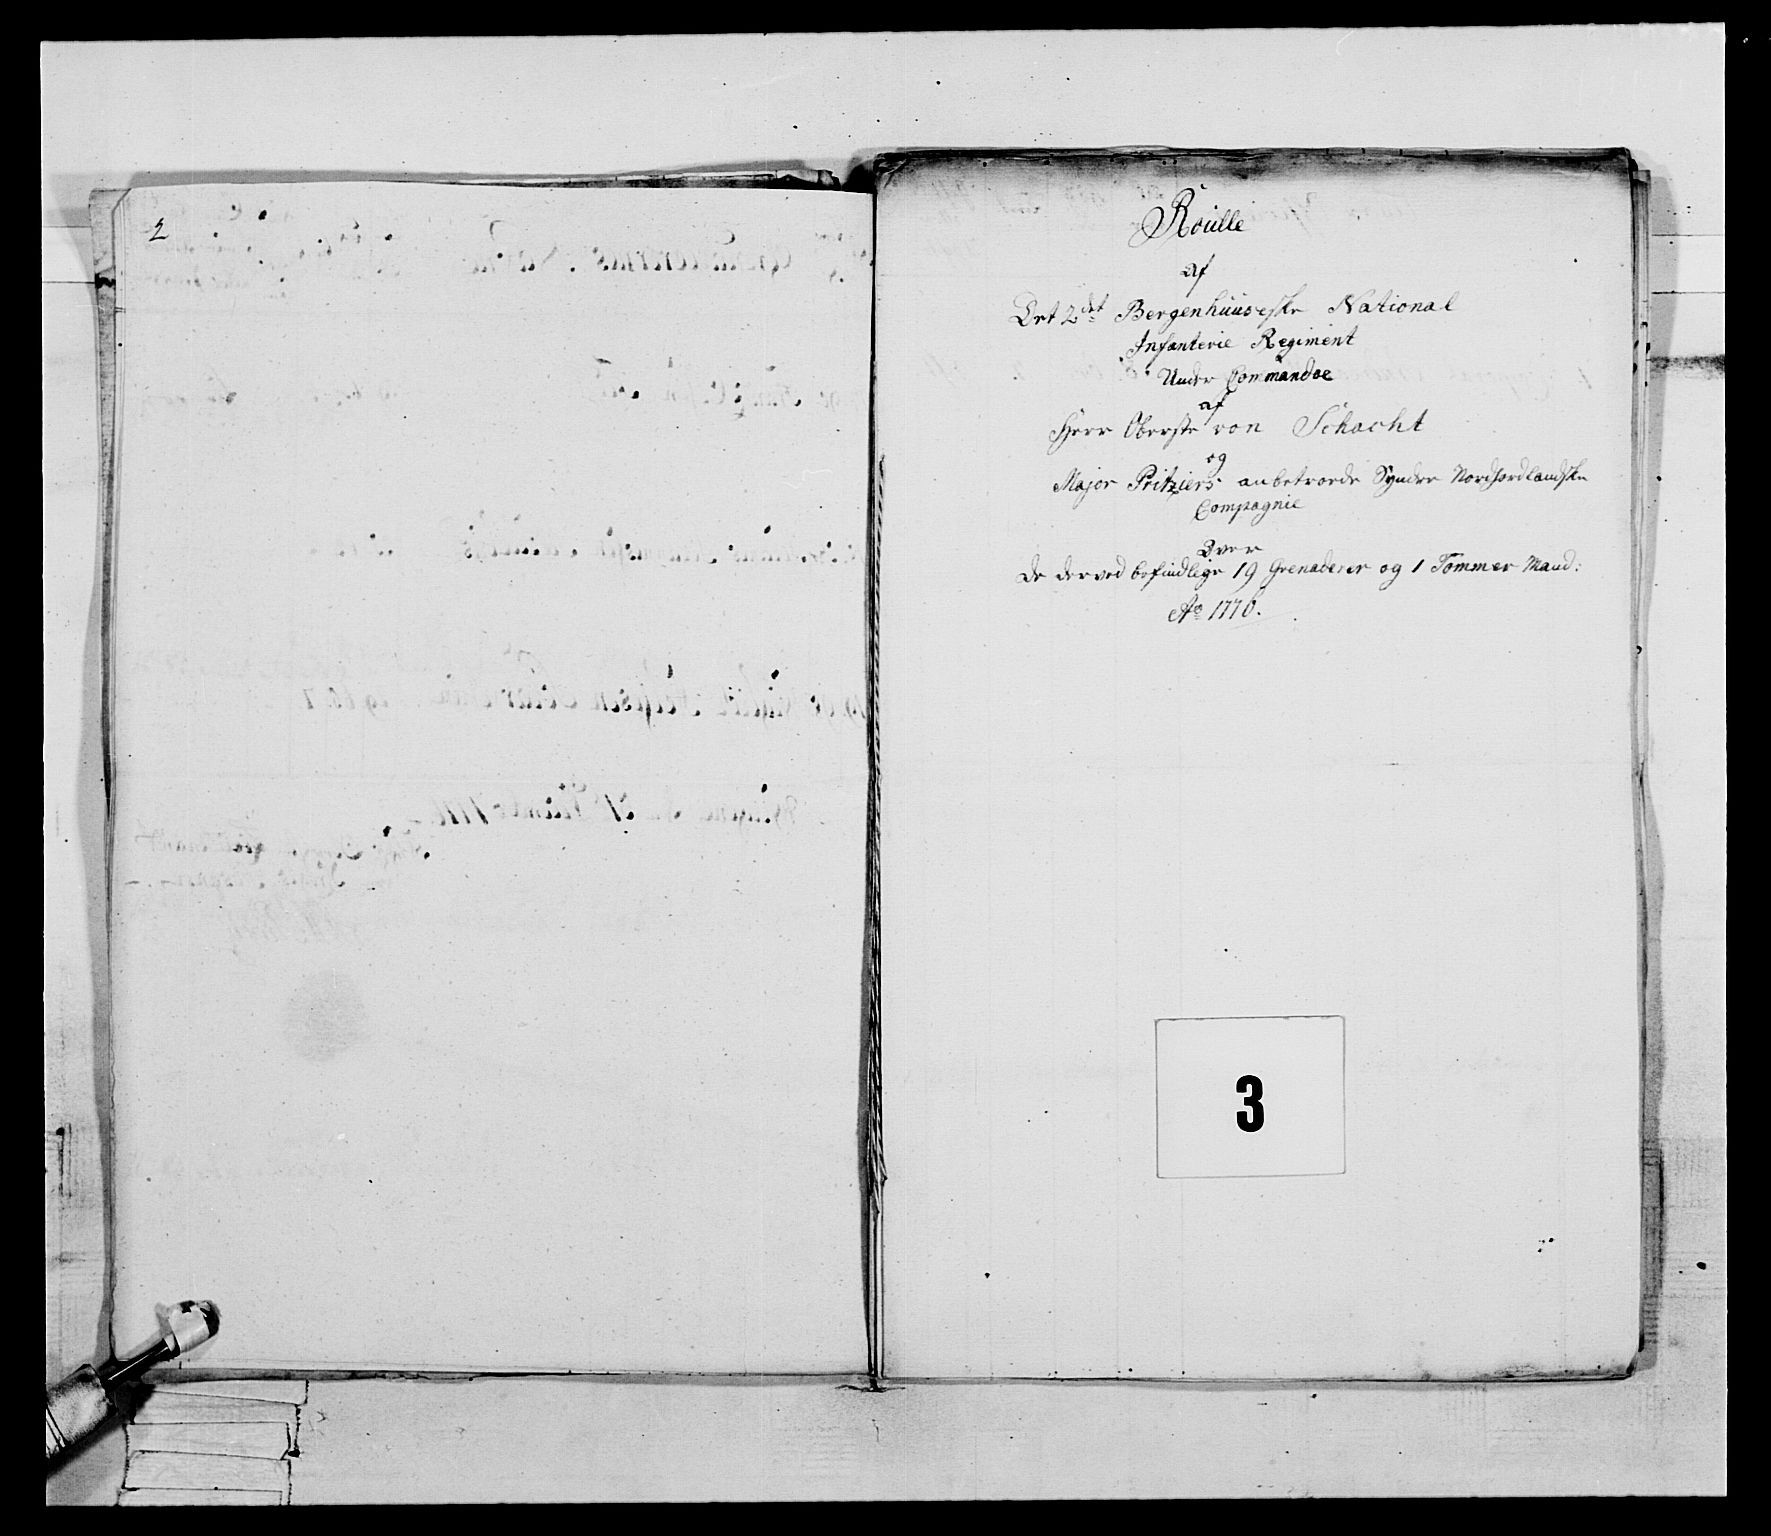 2
Roulle
af
Det 2det Bergenhuuseske National
Infanterie Regiment
Under Commandoe
af
Herr Oberste von Schacht
og
Major Pritziers anbetroede Syndre Nordfiordlandske
Compagnie
Over
de derved befindlige 19 Grenaderer og 1 Tømmer Mand:
Ao 1776.
3